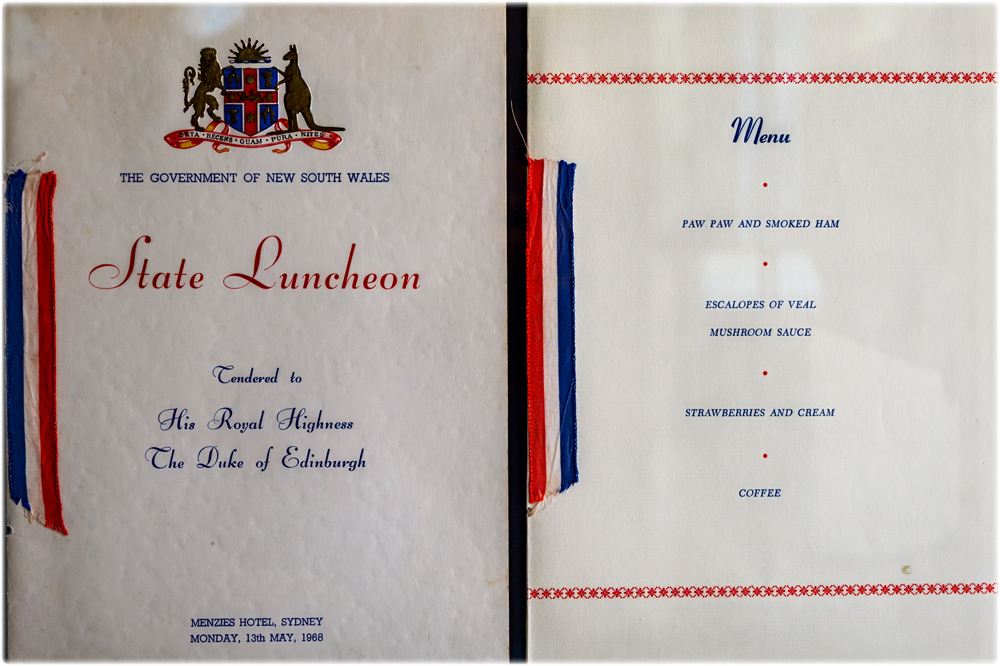 ORTA · RECENS · QUAM · PURA · NITES
THE GOVERNMENT OF NEW SOUTH WALES
State Luncheon
Tendered to
His Royal Highness
The Duke of Edinburgh
MENZIES HOTEL, SYDNEY
MONDAY, 13th MAY, 1968
Menu
PAW PAW AND SMOKED HAM
ESCALOPES OF VEAL
MUSHROOM SAUCE
STRAWBERRIES AND CREAM
COFFEE